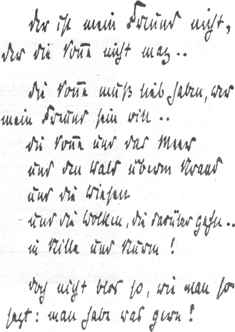 der ist mein Freund nicht,
der die Sonne nicht mag..
die Sonne muß lieb haben, wer
mein Freund sein will..
die Sonne und das Meer
und den Wald überm Strand
und die Wiesen
und die Wolken, die darüber gehn..
in Stille und Sturm!
doch nicht blos so, wie man so
sagt: man habe was gern!